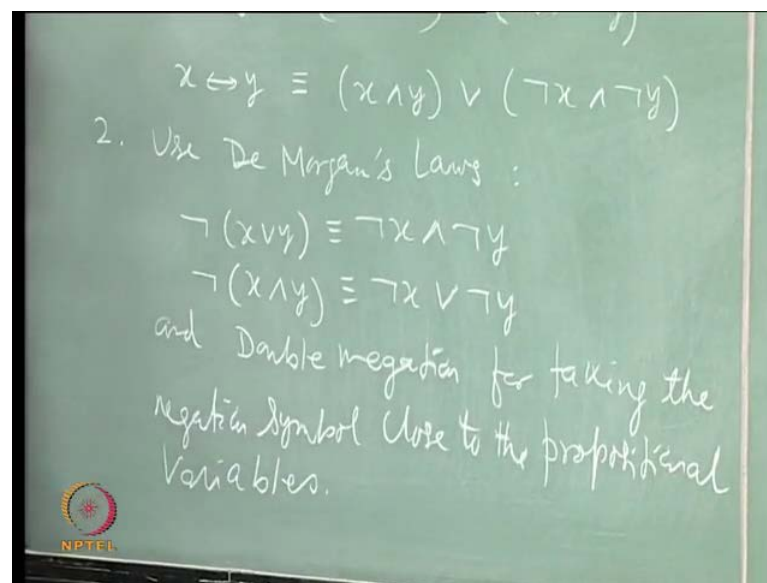 x ↔ y ≡ (x ∧ y) ∨ (¬x ∧ ¬y)
2. Use De Morgan's Laws :
¬(x∨y) ≡ ¬x ∧ ¬y
¬(x∧y) ≡ ¬x ∨ ¬y
and Double negation for taking the
negation symbol close to the propositional
variables.
NPTEL